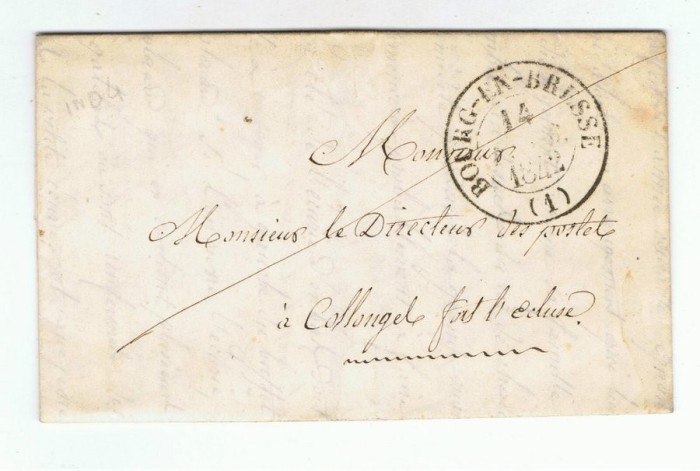 BOURG-EN-BRESSE
14
1842
(1)
Monsieur
Monsieur le Directeur des postes
à Collonges fort l'Ecluse.